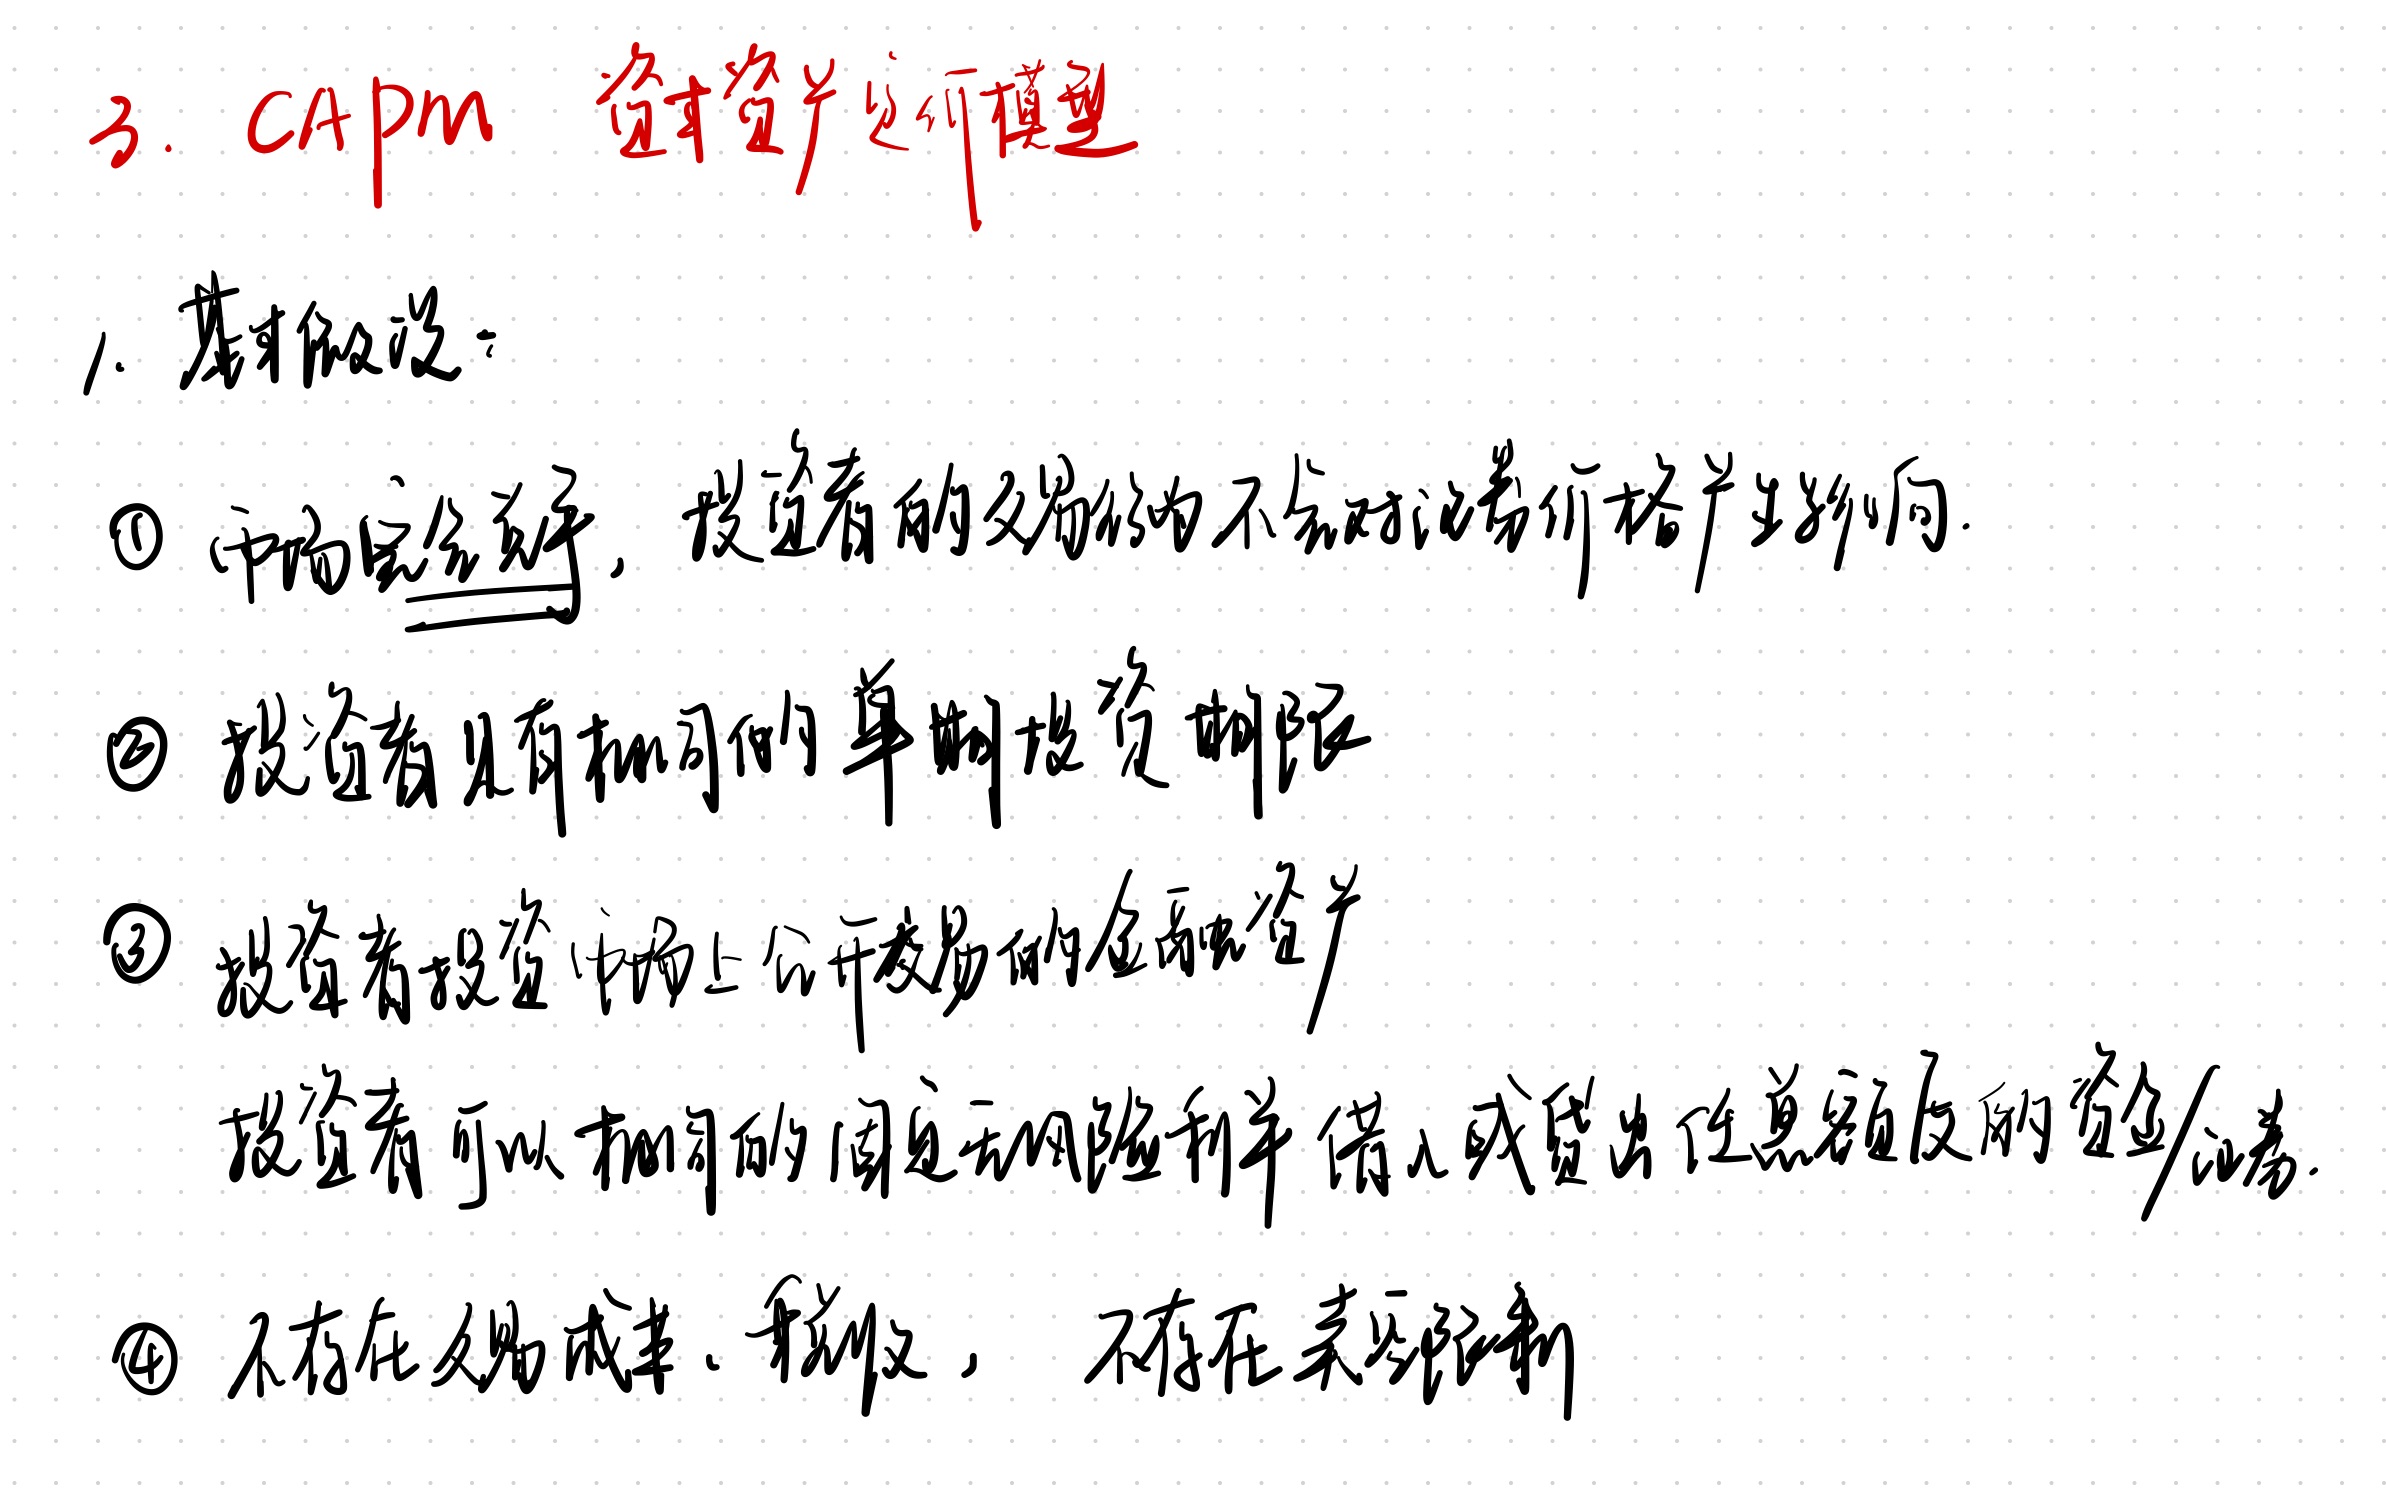 2. CAPM 资本资产定价模型
1. 基本假设：
① 市场完全竞争，投资者的交易行为不会对证券价格产生影响.
② 投资者具有相同的单期投资期限
③ 投资者投资市场上公开交易的金融资产
投资者可以相同的固定无风险利率借入或贷出任意额度的资金/证券.
④ 不存在交易成本、税收，不存在卖空限制